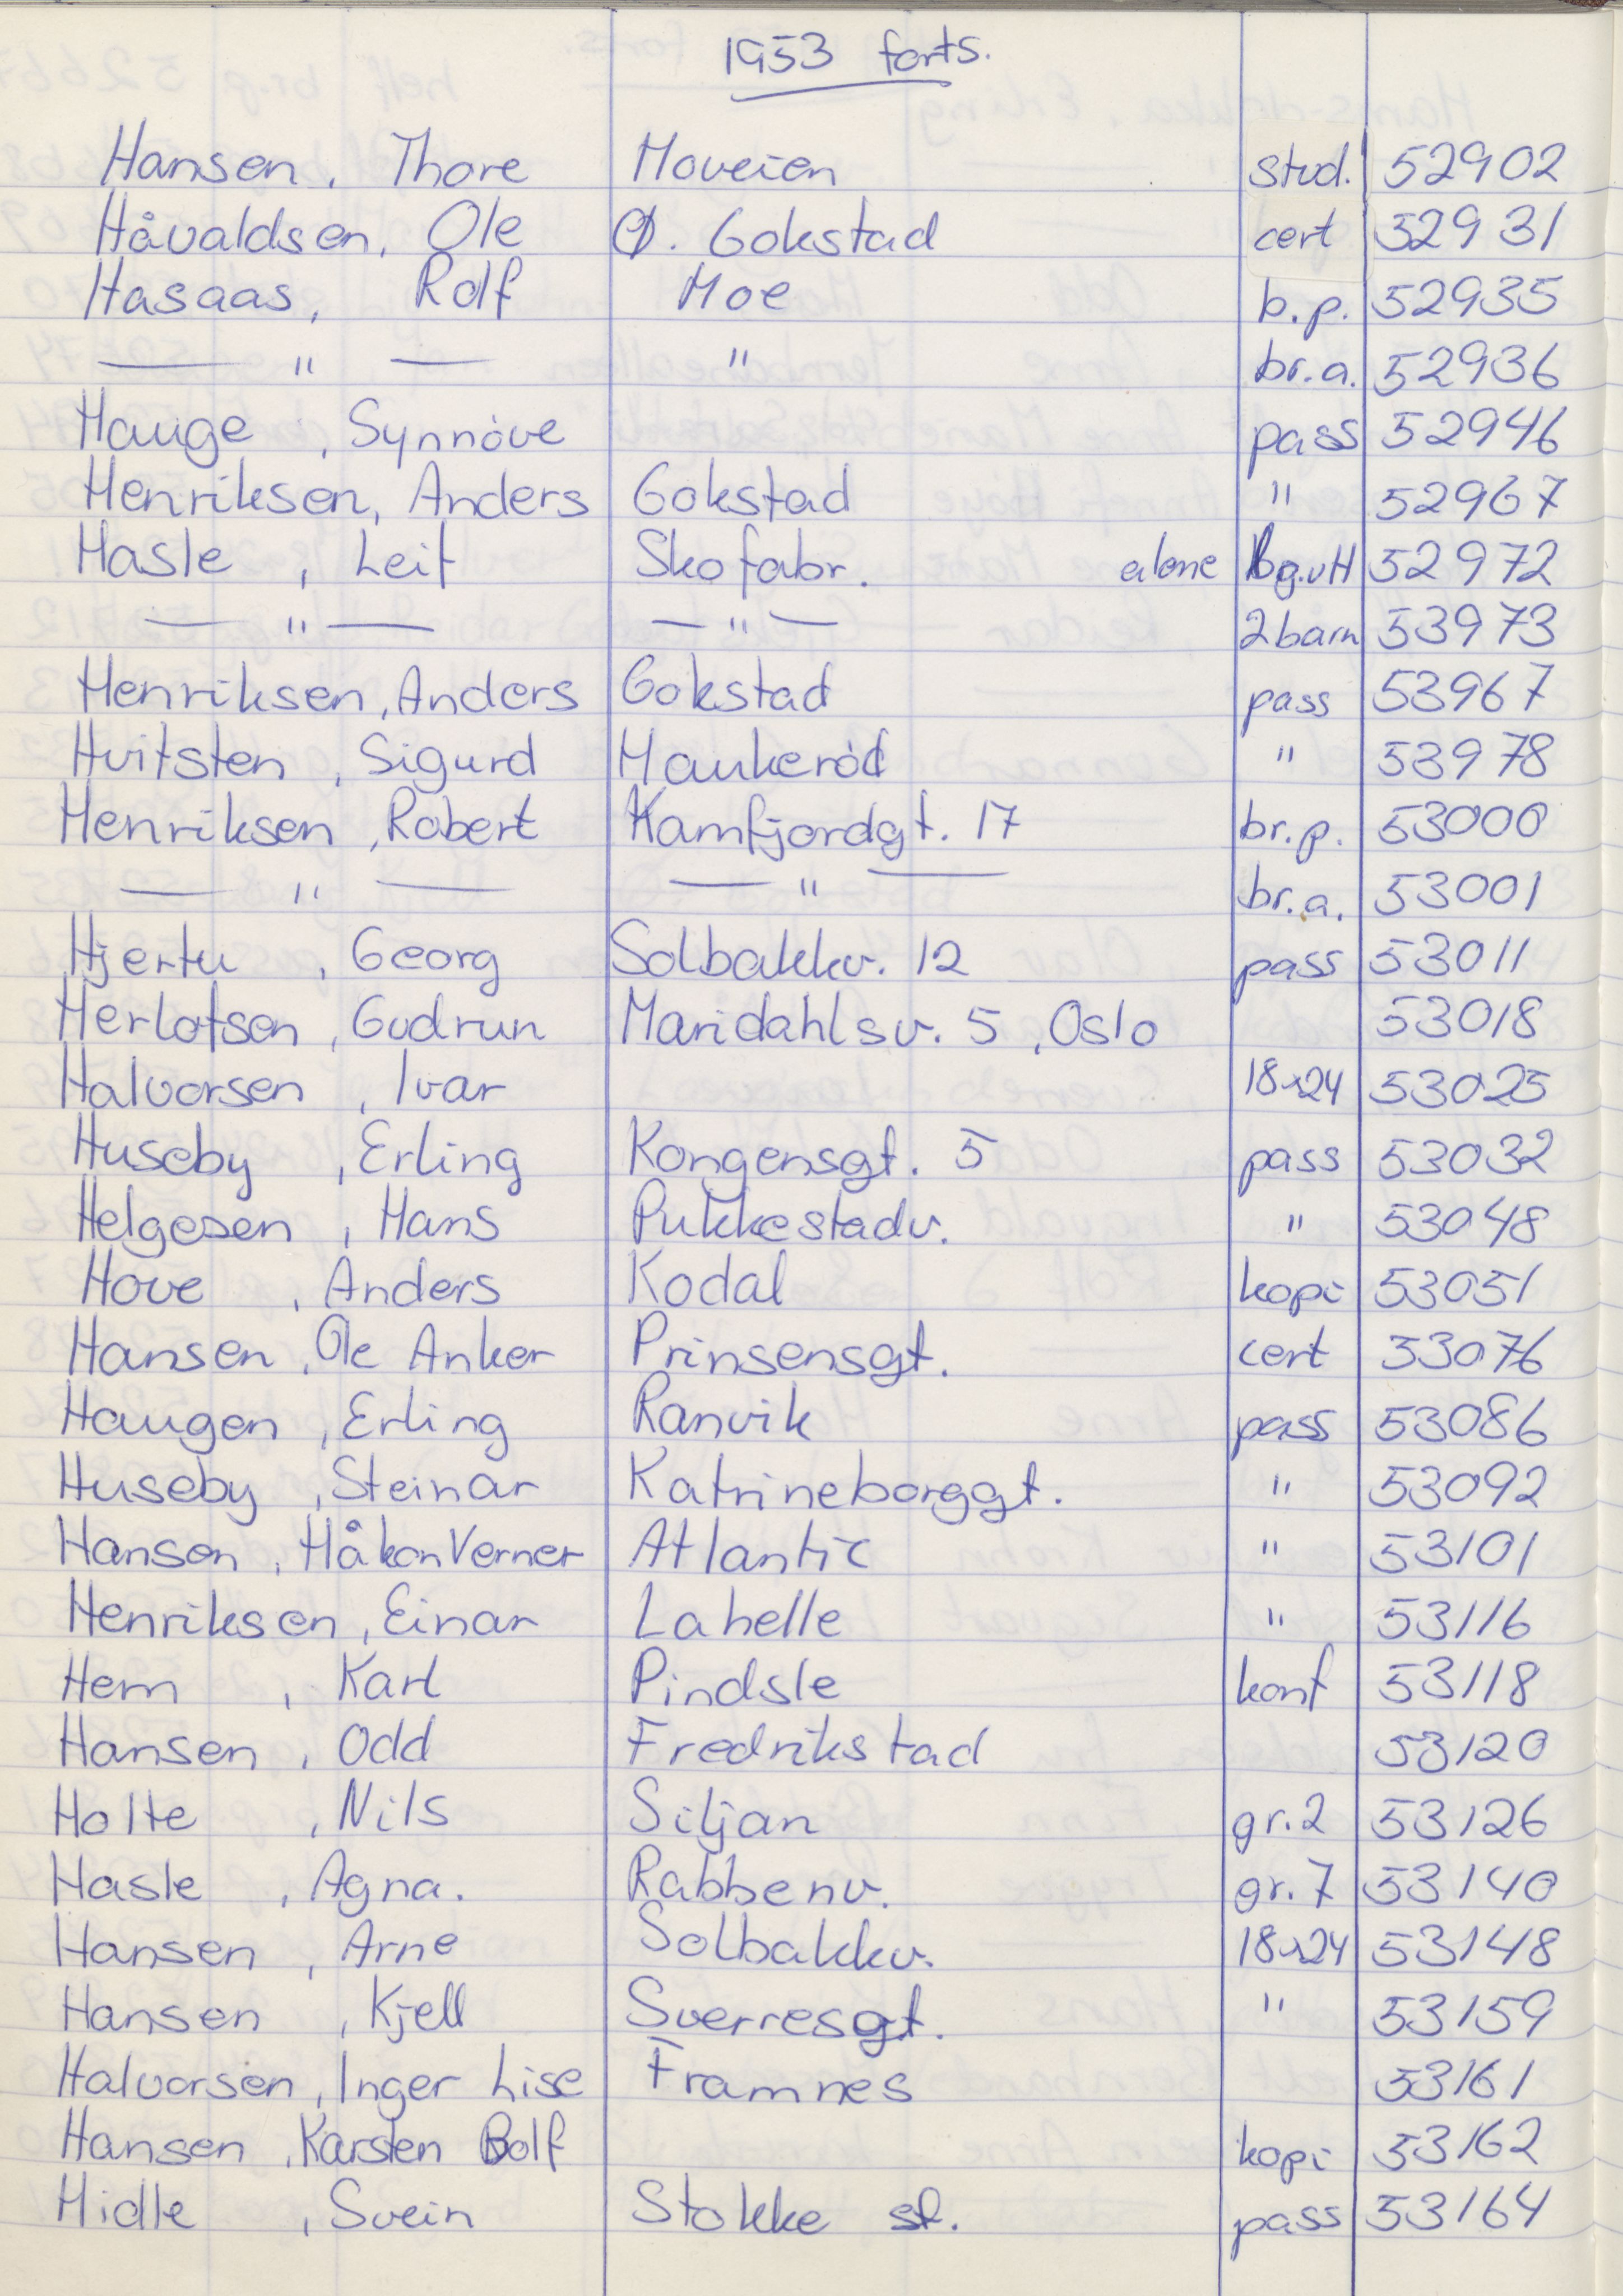 1953 forts.
Hansen, Thore Moveien stud. 52902
Håvaldsen, Ole Ø. Gokstad cert 52931
Hasaas, Rolf Moe b.p. 52935
— " — " br.a. 52936
Hauge, Synnöve pass 52946
Henriksen, Anders Gokstad " 52967
Hasle, Leif Skofabr. alene bg.vH 52972
— " — — " — 2 barn 53973
Henriksen, Anders Gokstad pass 53967
Hvitsten, Sigurd Haukeröd " 53978
Henriksen, Robert Kamfjordgt. 17 br.p. 53000
— " — — " — br.a. 53001
Hjertu, Georg Solbakkv. 12 pass 53011
Herlofsen, Gudrun Maridahlsv. 5, Oslo 53018
Halvorsen, Ivar 18x24 53025
Huseby, Erling Kongensgt. 5 pass 53032
Helgesen, Hans Pukkestadv. " 53048
Hove, Anders Kodal kopi 53051
Hansen, Ole Anker Prinsensgt. cert 53076
Haugen, Erling Ranvik pass 53086
Huseby, Steinar Katrineborggt. " 53092
Hansen, Håkon Verner Atlantic " 53101
Henriksen, Einar Lahelle " 53116
Hem, Karl Pindsle konf 53118
Hansen, Odd Fredrikstad 53120
Holte, Nils Siljan gr.2 53126
Hasle, Agna. Rabbenv. gr.7 53140
Hansen, Arne Solbakkv. 18x24 53148
Hansen, Kjell Sverresgt. " 53159
Halvorsen, Inger Lise Framnes 53161
Hansen, Karsten Rolf kopi 53162
Hidle, Svein Stokke st. pass 53164